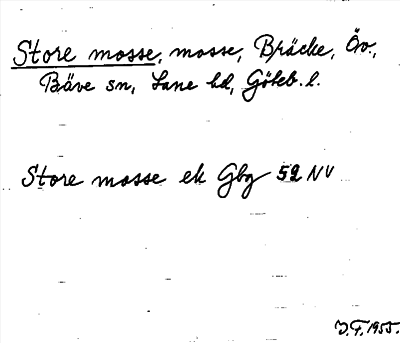 Store mosse, mosse, Bräcke, Öv.,
Bäve sn, Lane hd, Göteb. l.
Store mosse ek Gbg 52 NV
J.F. 1955.